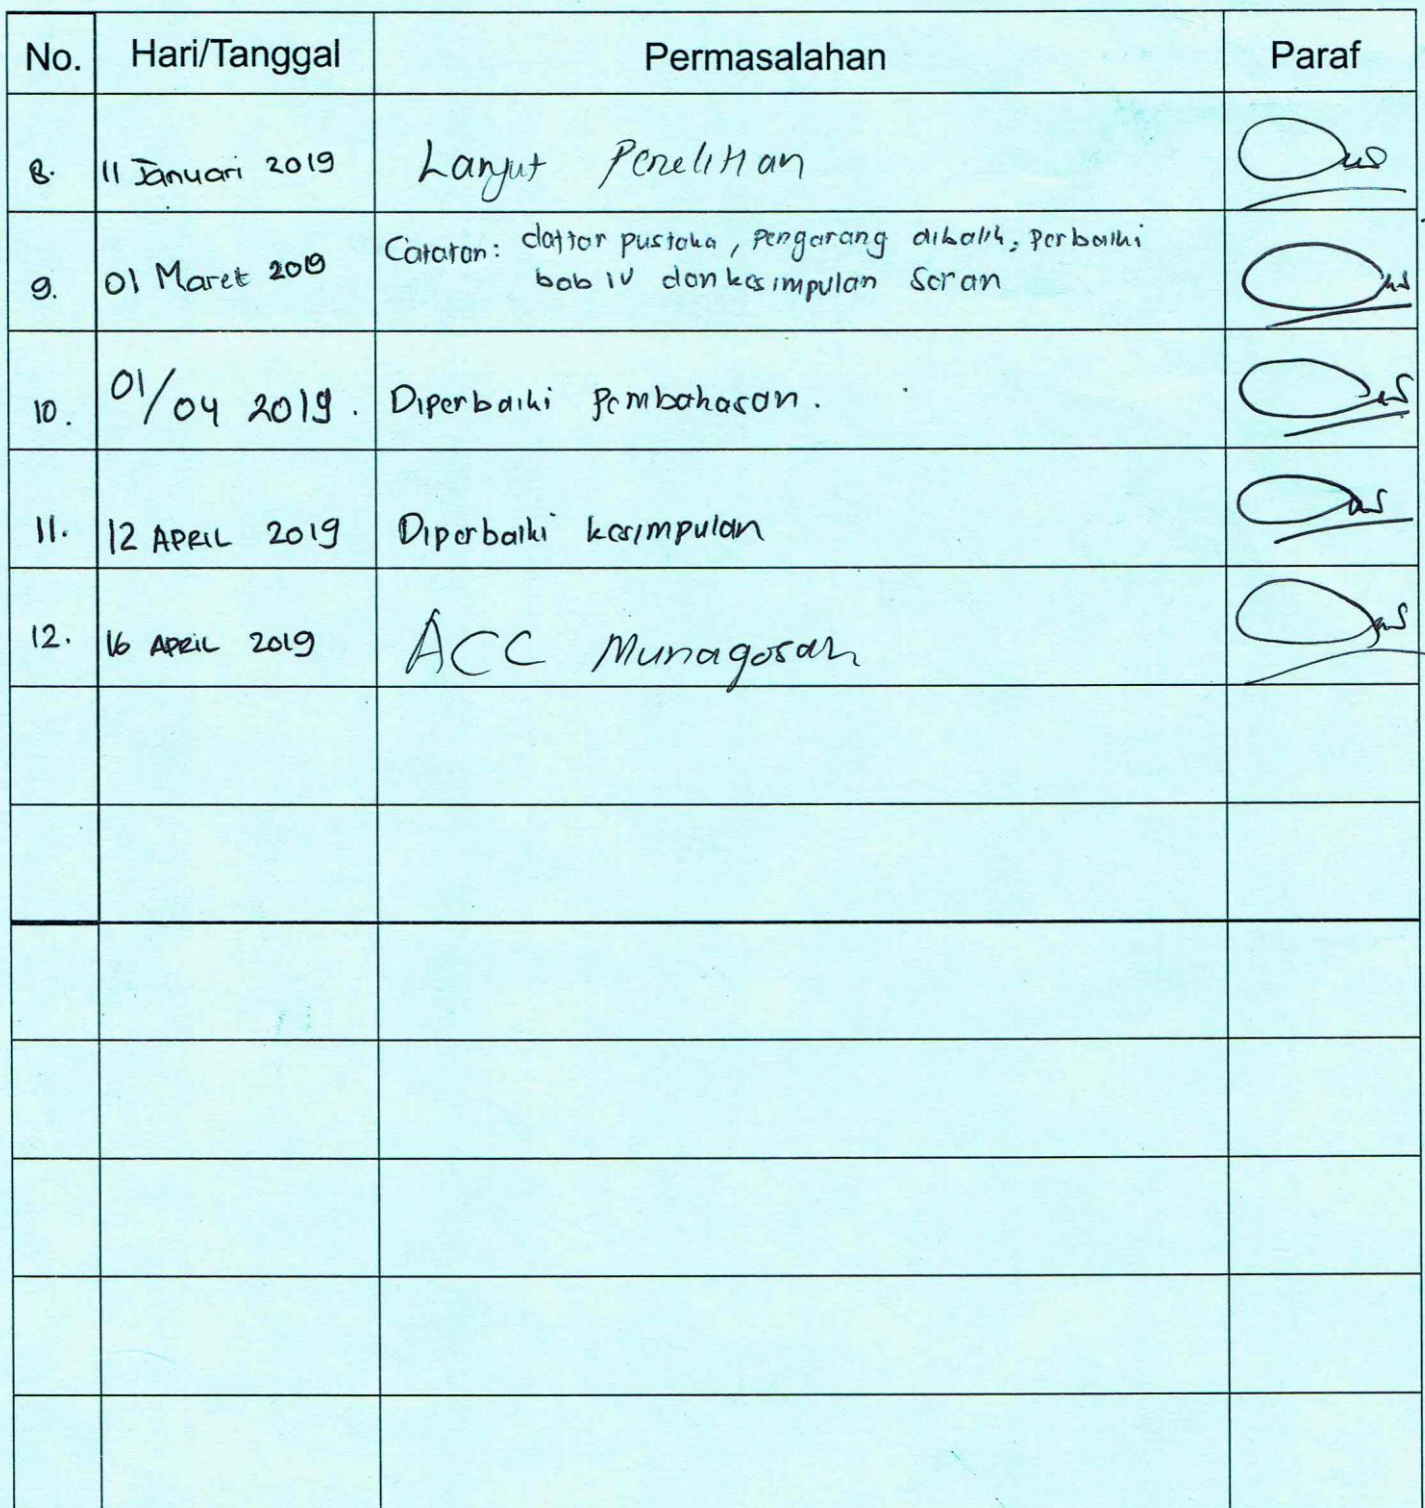 No. Hari/Tanggal Permasalahan Paraf
8. 11 Januari 2019 Lanjut Penelitian
9. 01 Maret 2019 Catatan: daftar pustaka, pengarang dibalik, perbaiki
bab IV dan kesimpulan saran
10. 01/04 2019. Diperbaiki pembahasan.
11. 12 APRIL 2019 Diperbaiki kesimpulan
12. 16 APRIL 2019 ACC Munaqosah